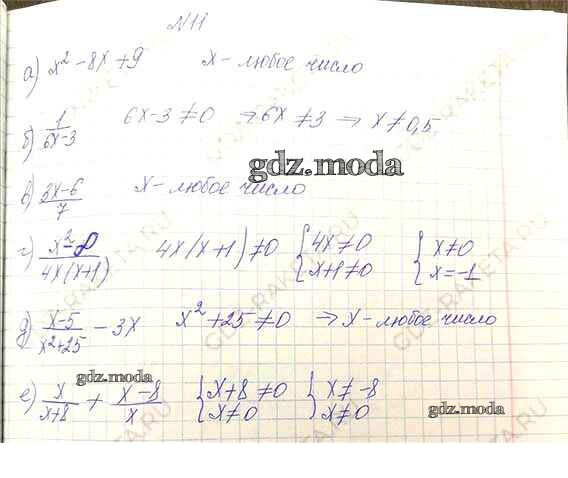 №11
а) x² - 8x + 9    x - любое число
б) 1/(6x-3)    6x-3≠0 ⇒ 6x≠3 ⇒ x≠0,5
gdz.moda
в) (3x-6)/7    x - любое число
г) (x²-8)/(4x(x+1))    4x(x+1)≠0 { 4x≠0 x+1≠0 { x≠0 x=-1
д) (x-5)/(x²+25) - 3x    x²+25≠0 ⇒ x - любое число
gdz.moda
е) x/(x+8) + (x-8)/x    { x+8≠0 x≠0 { x≠-8 x≠0
gdz.moda
GDZ-RAKETA.RU